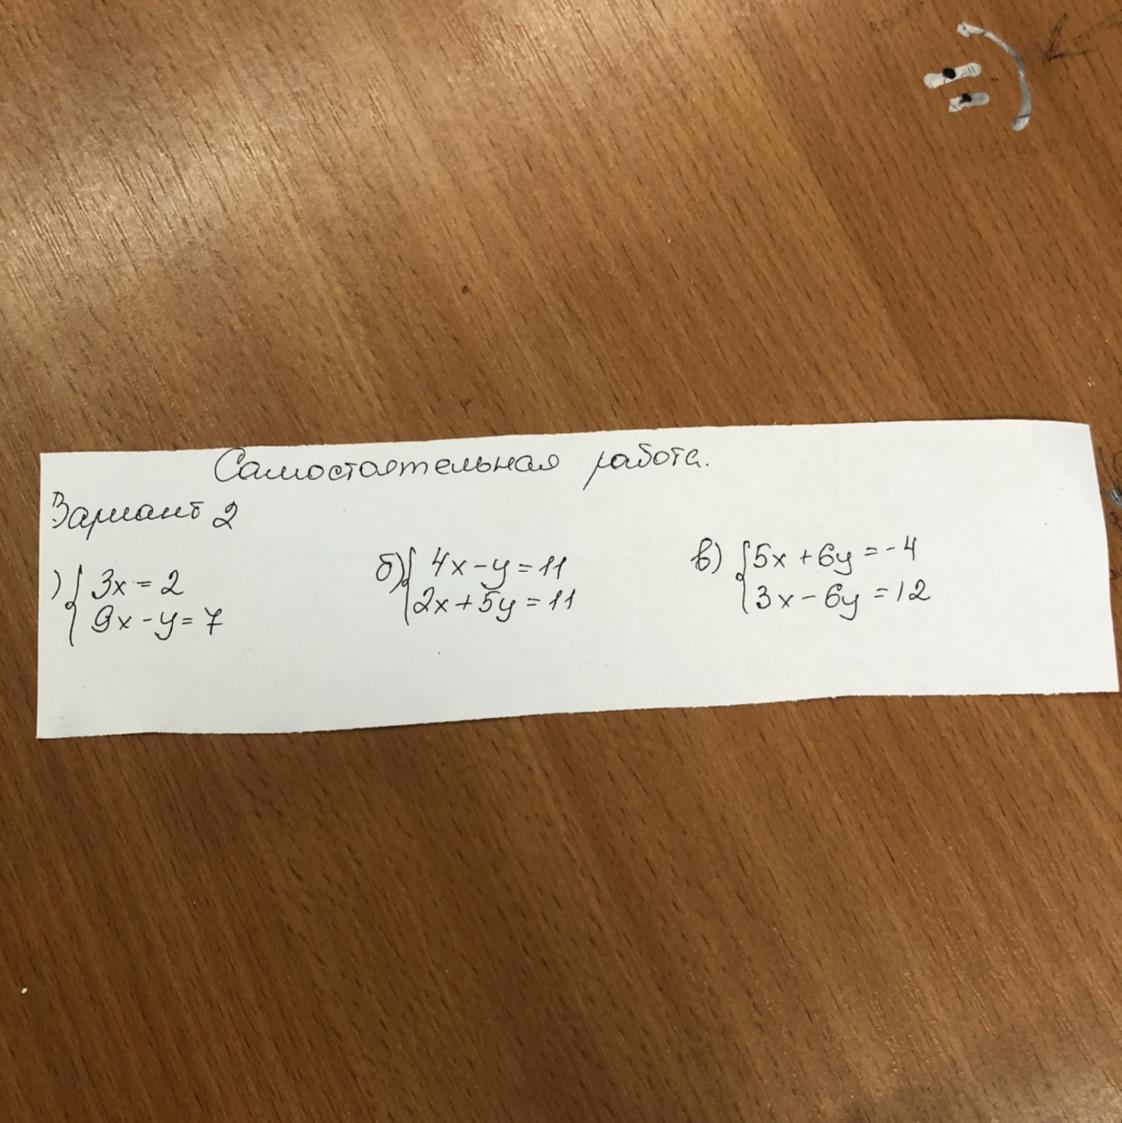 Самостоятельная работа.
Вариант 2
) { 3x = 2
9x - y = 7
б) { 4x - y = 11
2x + 5y = 11
в) { 5x + 6y = -4
3x - 6y = 12